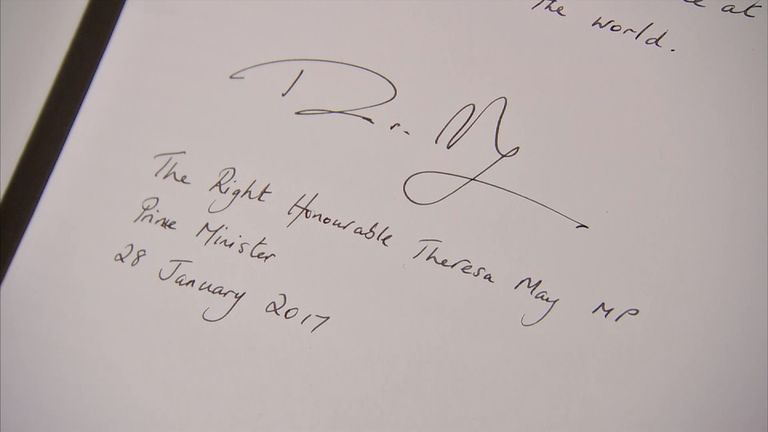 at
the world.
The Right Honourable Theresa May MP
Prime Minister
28 January 2017